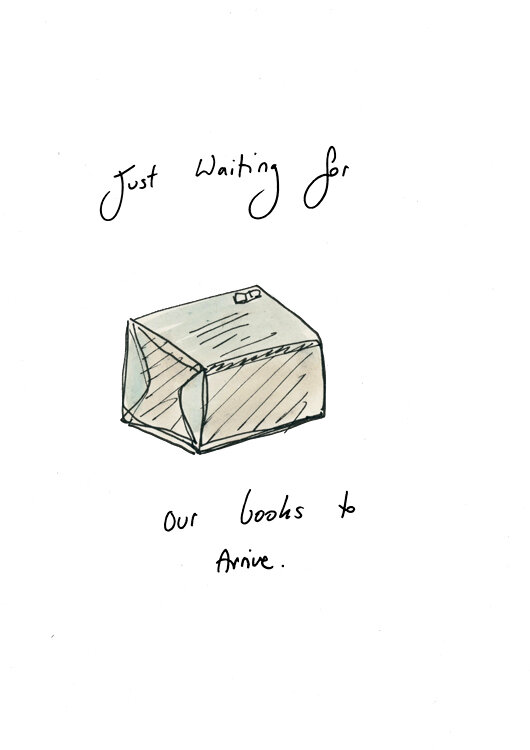 Just Waiting for
Our books to
Arrive.